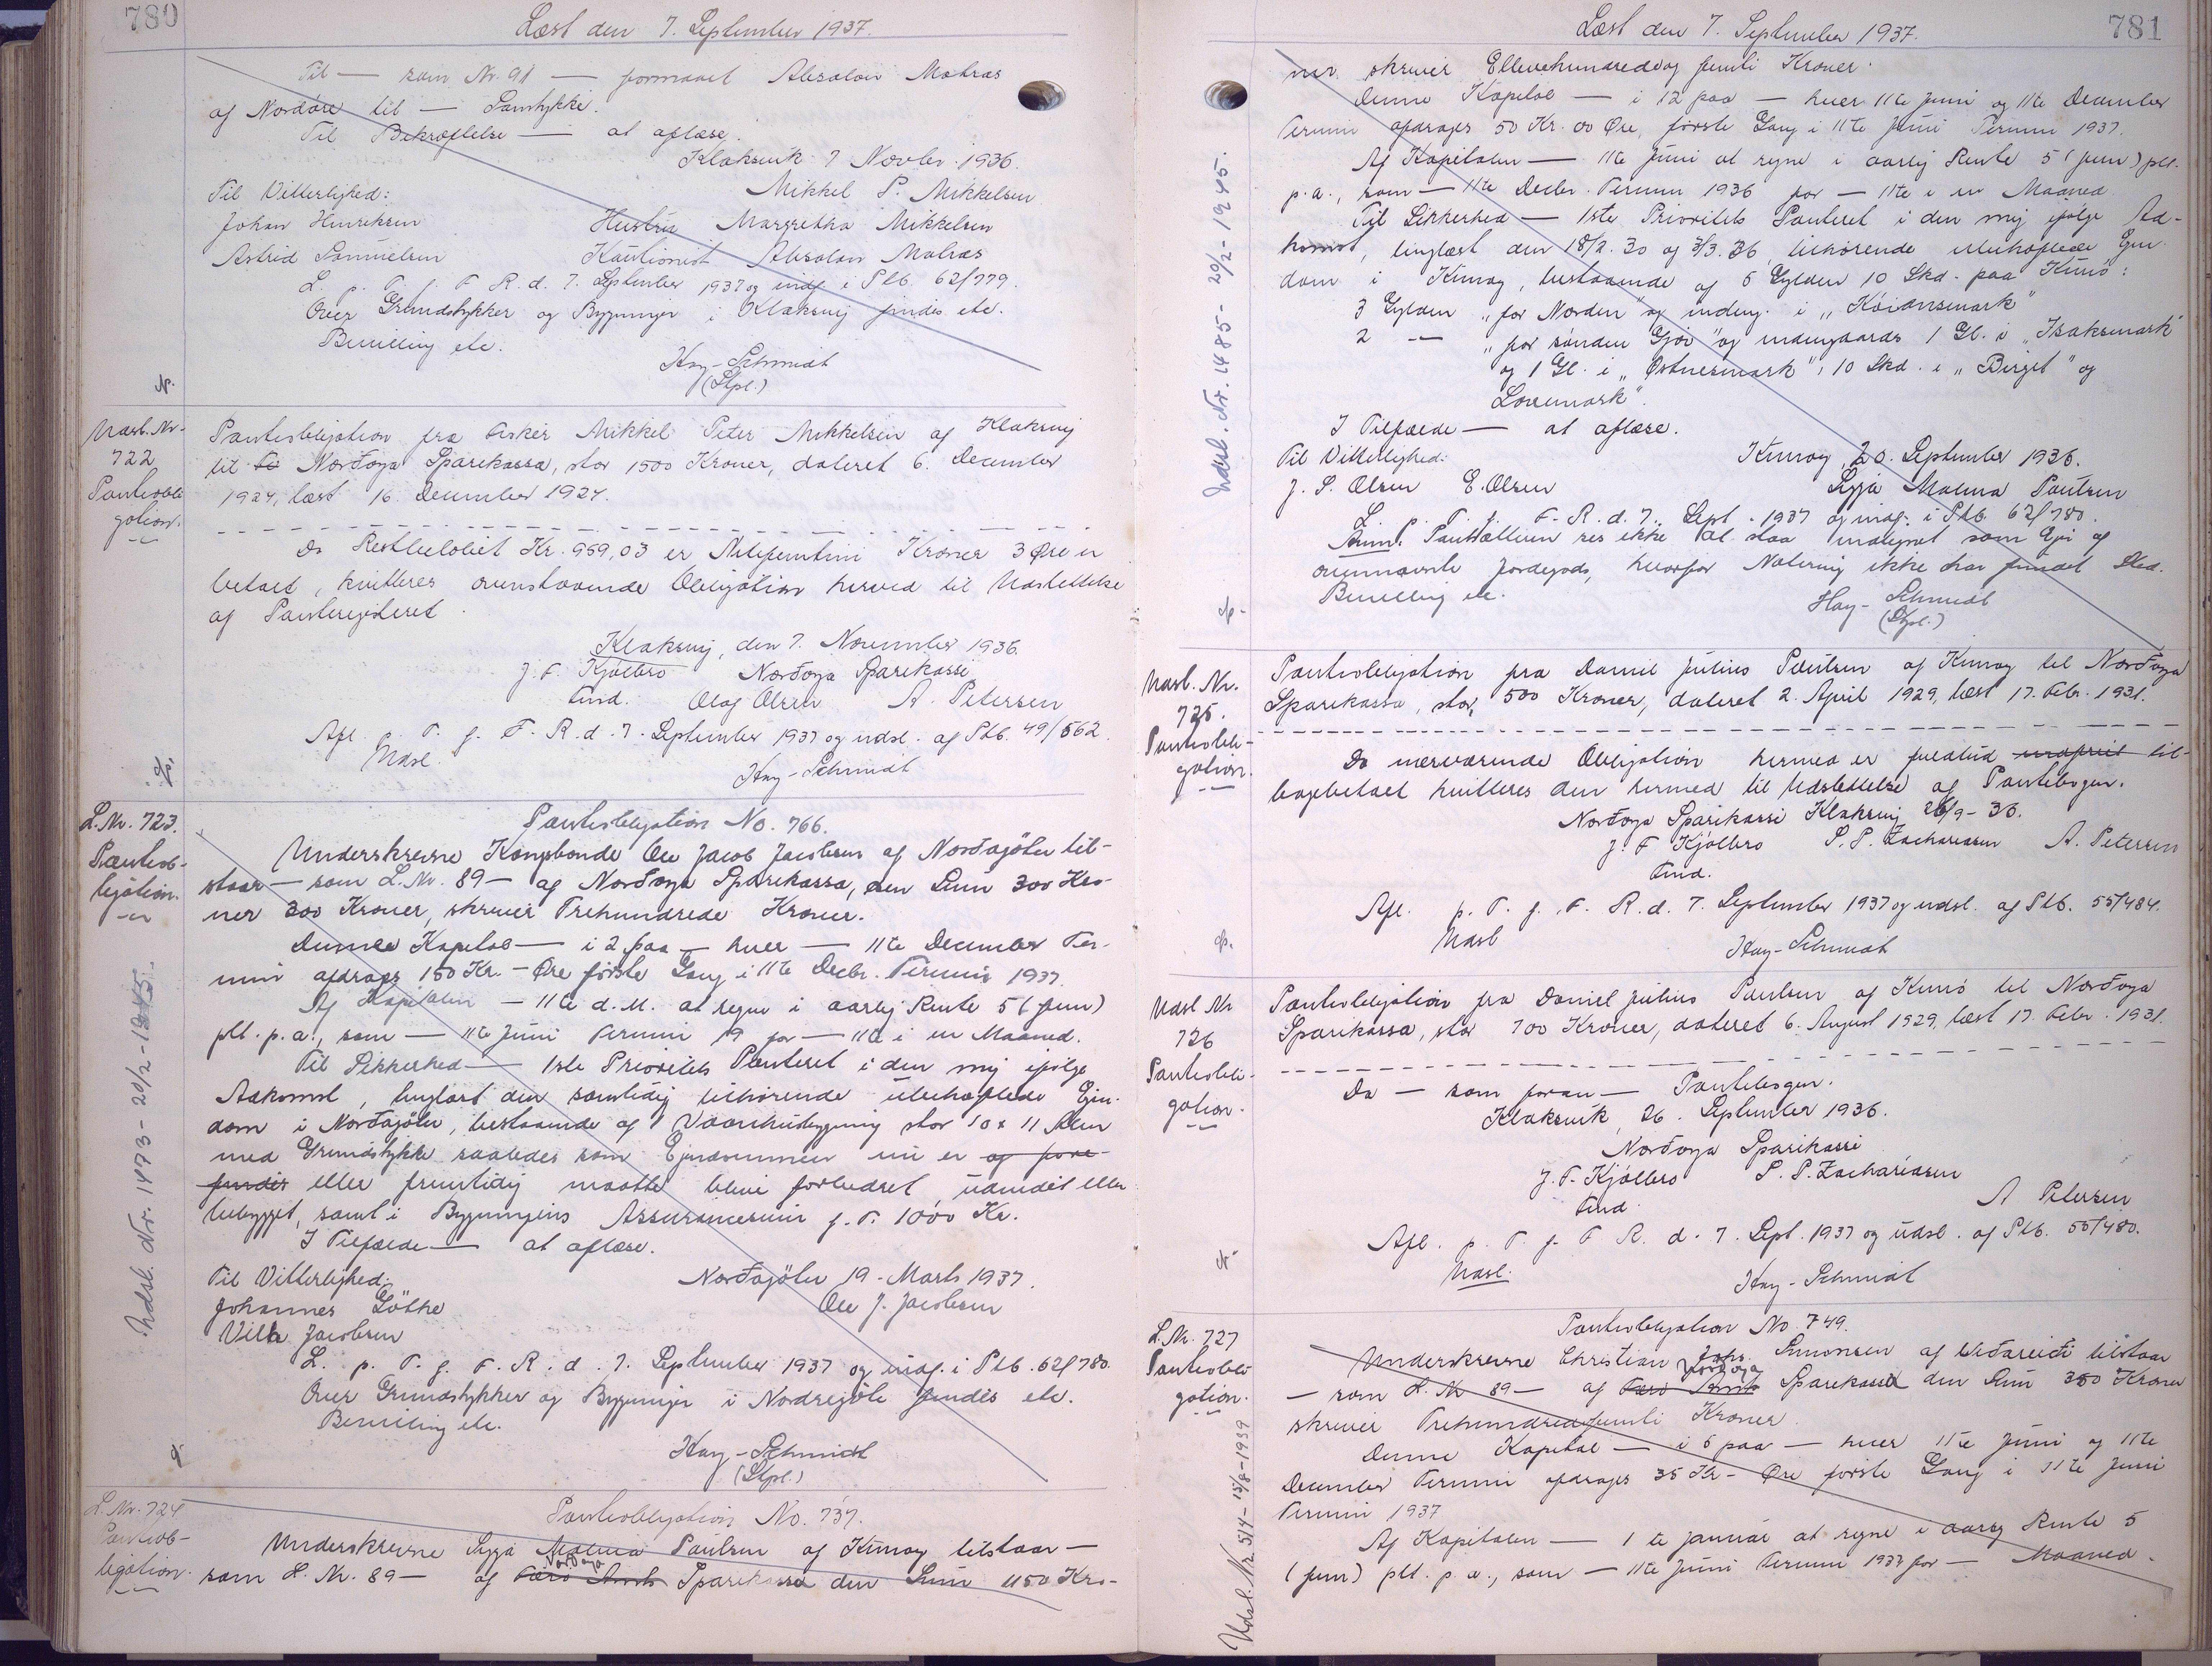 780
Læst den 7. September 1937.
Til — som Nr. 91 — formaaet Absalon Matras
af Nordøre til — Samtykke.
Til Bekræftelse — at aflæse.
Klaksvik 7 Novbr. 1936.
Til Vitterlighed:
Mikkel P. Mikkelsen
Johan Henriksen
Hustru Margretha Mikkelsen
Astrid Samuelsen
Kautionist Absalon Matras
L. p. T. f. F. R. d. 7. September 1937 og indf. i Ptb. 62/779.
Over Grundstykker og Bygninger i Klaksvig findes etc.
Bevilling etc.
Hay-Schmidt
(Stpl.)
Udsl. Nr.
722
Pantobli
gation.
Pantobligation fra Fisker Mikkel Peter Mikkelsen af Klaksvig
til Fæ Norðoya Sparikassa, stor 1500 Kroner, dateret 6. December
1924, læst 16. December 1924.
Da Restbeløbet Kr. 959,03 er Nitifemtini Kroner 3 Øre er
betalt, kvitteres ovenstaaende Obligation herved til Udslettelse
af Panteregisteret.
Klaksvig, den 7. November 1936.
J. F. Kjølbro Norðoya Sparikassi
Fmd. Olaf Olsen A. Petersen
Afl. p. T. f. F. R. d. 7. September 1937 og udsl. af Ptb. 49/562.
Udsl.
Hay-Schmidt
L. Nr. 723.
Pantob-
ligation.
Udsl. Nr. 1473 - 20/2 - 1945.
Pantobligation No. 766.
Underskrevne Kongsbonde Ole Jacob Jacobsen af Norðagøtu til-
staar — som L. Nr. 89 — af Norðoya Sparikassa, den Sum 300 Kro-
ner 300 Kroner, skriver Trehundrede Kroner.
Denne Kapital — i 2 paa — hver — 11te December Ter-
min afdrages 150 Kr. - Øre første Gang i 11te Decbr. Termin 1937.
Af Kapitalen — 11te d. M. at regne i aarlig Rente 5 (fem)
pCt. p. a., som — 11te Juni Termin 19 for — 11te i en Maaned.
Til Sikkerhed — 1ste Prioritets Panteret i den mig ifølge
Adkomst, tinglæst den samtidig tilhørende ubehæftede Ejen-
dom i Norðagøtu, bestaaende af 1 Vaanhusbygning stor 10 x 11 Alen
med Grundstykke saaledes som Ejendommen nu er og fore-
findes eller fremtidig maatte blive forbedret, udvidet eller
bebygget, samt i Bygningens Assurancesum f. T. 1000 Kr.
I Tilfælde — at aflæse.
Til Vitterlighed:
Norðagøtu 19 - Marts 1937.
Johannes Gøtke
Ole J. Jacobsen
Villa Jacobsen
L. p. T. f. F. R. d. 7. September 1937 og indf. i Ptb. 62/780.
Over Grundstykker og Bygninger i Nordregøte findes etc.
Bevilling etc.
Hay-Schmidt
(Stpl.)
L. Nr. 724
Pantob-
ligation.
Pantobligation No. 737.
Underskrevne Sygja Malena Paulsen af Kunoy tilstaar —
Norðoya
som L. Nr. 89 — af Færø Amts Sparikassa den Sum 1150 Kro-
781
Læst den 7. September 1937.
Udsl. Nr. 1485 - 20/2 - 1945.
ner skriver Ellevehundredeog femti Kroner.
Denne Kapital — i 12 paa — hver 11te Juni og 11te December
Termin afdrages 50 Kr. 00 Øre, første Gang i 11te Juni Termin 1937.
Af Kapitalen — 11te Juni at regne i aarlig Rente 5 (fem) pCt.
p. a., som — 11te Decbr. Termin 1936 for — 11te i en Maaned.
Til Sikkerhed — 1ste Prioritets Panteret i den mig ifølge Ad-
komst, tinglæst den 18/2. 30 og 3/3. 36, tilhørende ubehæftede Ejen-
dom i Kunoy, bestaaende af 5 Gylden 10 Skd. paa Kunø:
3 Gylden „for Norden" og indeng. i „Kóiansmark"
2 — „for sønden Gjov" og indengaards 1 Gl. i „Isaksmark"
og 1 Gl. i „Østnesmark", 10 Skd. i „Birgit" og
Lovemark".
I Tilfælde — at aflæse.
Til Vitterlighed:
Kunoy, 20. September 1936.
J. S. Olsen E. Olsen
Sygja Malena Paulsen
L. p. T. f. F. R. d. 7. Sept. 1937 og indf. i Ptb. 62/780.
Anm. Panthaveren ses ikke at staa indtegnet som Ejer af
ovennævnte Jordegods, hvorfor Notering ikke har fundet Sted.
Bevilling etc.
Hay-Schmidt
(Stpl.)
Udsl. Nr.
725.
Pantobli-
gation.
Pantobligation fra Daniel Julius Paulsen af Kunoy til Norðoya
Sparikassa, stor, 500 Kroner, dateret 2. April 1929, læst 17. Febr. 1931.
Da nærværende Obligation hermed er fuldtud indfriet til-
bagebetalt kvitteres den hermed til Udslettelse af Pantebogen.
Norðoya Sparikassi Klaksvig 26/9 - 36.
J. F. Kjølbro S. P. Zachariasen A. Petersen
Fmd.
Afl. p. T. f. F. R. d. 7. September 1937 og udsl. af Ptb. 55/484.
Udsl
Hay-Schmidt
Udsl Nr
726
Pantobli-
gation.
Pantobligation fra Daniel Julius Paulsen af Kunø til Norðoya
Sparikassa, stor 700 Kroner, dateret 6. August 1929, læst 17. Febr. 1931.
Da — som foran — Pantebogen.
Klaksvik, 26. September 1936.
Norðoya Sparikassi
J. F. Kjølbro S. P. Zachariasen
Fmd.
A Petersen
Afl. p. T. f. F R. d. 7. Sept. 1937 og udsl. af Ptb. 55/480.
Udsl.
Hay-Schmidt
L. Nr. 727
Pantobli
gation.
Udsl. Nr. 514 - 15/8 - 1939
Pantobligation No. 749.
Underskrevne Christian Johs. Simonsen af Viðareiði tilstaar
Norðoya
— som L. Nr 89 — af Færø Amts Sparikassa den Sum 350 Kroner
skriver Trehundredefemti Kroner.
Denne Kapital — i 5 paa — hver 11te Juni og 11te
December Termin afdrages 35 Kr - Øre første Gang i 11te Juni
Termin 1937
Af Kapitalen — 1 te Januar at regne i aarlig Rente 5
(fem) pCt. p. a., som — 11te Juni Termin 1937 for — Maaned.